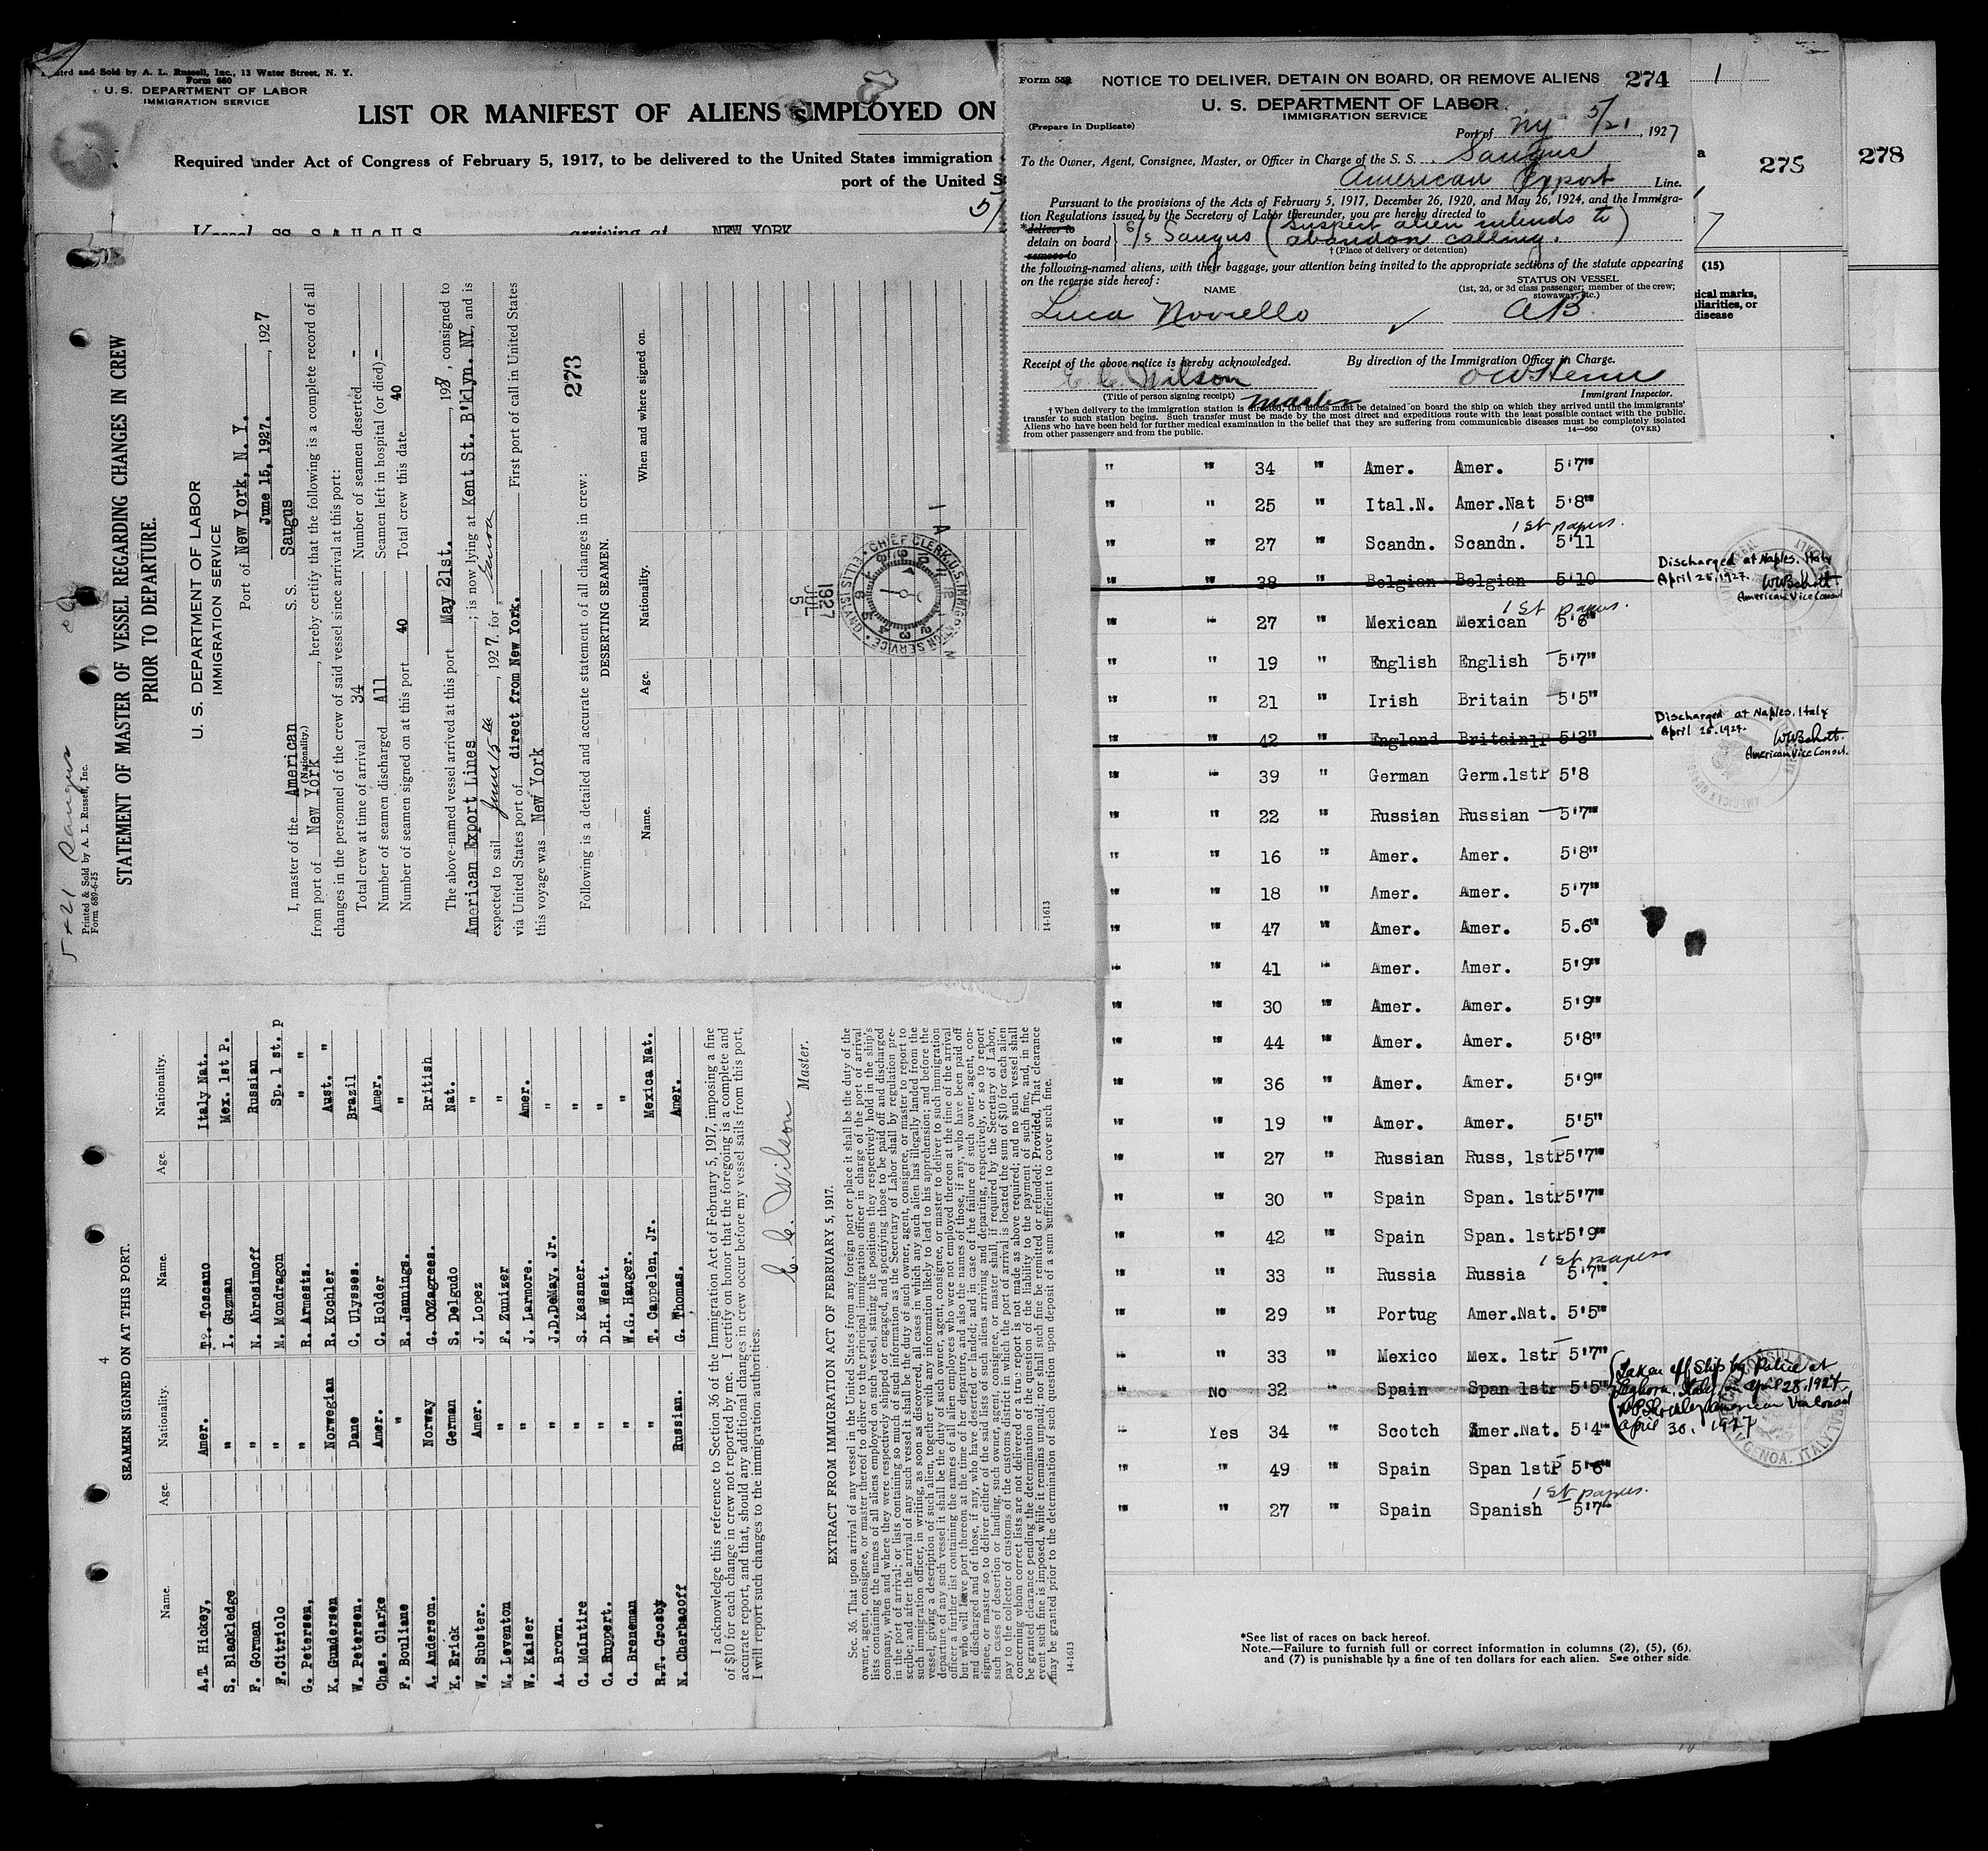 Printed and Sold by A. L. Russell, Inc., 13 Water Street, N. Y.
Form 680
U. S. DEPARTMENT OF LABOR
IMMIGRATION SERVICE
LIST OR MANIFEST OF ALIENS EMPLOYED ON
Required under Act of Congress of February 5, 1917, to be delivered to the United States immigration
port of the United S
5/
Vessel SS SAUGUS arriving at NEW YORK
Form 559 NOTICE TO DELIVER, DETAIN ON BOARD, OR REMOVE ALIENS 274
U. S. DEPARTMENT OF LABOR
IMMIGRATION SERVICE
(Prepare in Duplicate)
Port of NY 5/21, 1927
To the Owner, Agent, Consignee, Master, or Officer in Charge of the S. S. Saugus
American Export Line.
Pursuant to the provisions of the Acts of February 5, 1917, December 26, 1920, and May 26, 1924, and the Immigra-
tion Regulations issued by the Secretary of Labor thereunder, you are hereby directed to
*deliver to
detain on board
remove to
S/S Saugus (suspect alien intends to
abandon calling.)
† (Place of delivery or detention)
the following-named aliens, with their baggage, your attention being invited to the appropriate sections of the statute appearing
on the reverse side hereof:
NAME
STATUS ON VESSEL
(1st, 2d, or 3d class passenger; member of the crew;
stowaway, etc.)
Luca Noviello ✓ AB
Receipt of the above notice is hereby acknowledged. By direction of the Immigration Officer in Charge.
C. C. Wilson
(Title of person signing receipt) Master
Immigrant Inspector.
† When delivery to the immigration station is directed, the aliens must be detained on board the ship on which they arrived until the immigrants'
transfer to such station begins. Such transfer must be made by the most direct and expeditious route with the least possible contact with the public.
Aliens who have been held for further medical examination in the belief that they are suffering from communicable diseases must be completely isolated
from other passengers and from the public.
14—660 (OVER)
1
a
275
278
7
(15)
ical marks,
uliarities, or
disease
" " 34 " Amer. Amer. 5'7"
" " 25 " Ital.N. Amer.Nat 5'8"
1st papers.
" " 27 " Scandn. Scandn. 5'11
" " 38 " Belgian Belgian 5'10
Discharged at Naples. Italy
April 25, 1927.
American Vice Consul
1st papers.
" " 27 " Mexican Mexican 5'6"
" " 19 " English English 5'7"
" " 21 " Irish Britain 5'5"
" " 42 " England Britain1P 5'3"
Discharged at Naples, Italy
April 25, 1927.
American Vice Consul.
" " 39 " German Germ.1stP 5'8
" " 22 " Russian Russian 5'7"
" " 16 " Amer. Amer. 5'8"
" " 18 " Amer. Amer. 5'7"
" " 47 " Amer. Amer. 5.6"
" " 41 " Amer. Amer. 5'9"
" " 30 " Amer. Amer. 5'9"
" " 44 " Amer. Amer. 5'8"
" " 36 " Amer. Amer. 5'9"
" " 19 " Amer. Amer. 5'5"
" " 27 " Russian Russ, 1stP5'7"
" " 30 " Spain Span. 1stP5'7"
" " 42 " Spain Span. 1stP5'9"
1st papers
" " 33 " Russia Russia 5'7"
" " 29 " Portug Amer.Nat. 5'5"
" " 33 " Mexico Mex. 1stP 5'7"
" No 32 " Spain Span 1stP 5'5"
Taken off Ship by Police at
Leghorn, Italy, April 28, 1927.
American Vice Consul
April 30, 1927
GENOA, ITALY
" Yes 34 " Scotch Amer.Nat. 5'4"
" " 49 " Spain Span 1stP 5'6"
1st papers.
" " 27 " Spain Spanish 5'7"
*See list of races on back hereof.
Note.—Failure to furnish full or correct information in columns (2), (5), (6),
and (7) is punishable by a fine of ten dollars for each alien. See other side.
5-21 Saugus
Printed & Sold by A. L. Russell, Inc.
Form 689-6-25
STATEMENT OF MASTER OF VESSEL REGARDING CHANGES IN CREW
PRIOR TO DEPARTURE.
U. S. DEPARTMENT OF LABOR
IMMIGRATION SERVICE
Port of New York, N. Y.
June 15, 1927., 1927
I, master of the American S. S. Saugus
(Nationality.)
from port of New York, hereby certify that the following is a complete record of all
changes in the personnel of the crew of said vessel since arrival at this port:
Total crew at time of arrival 34 Number of seamen deserted -
Number of seamen discharged All Seamen left in hospital (or died) -
Number of seamen signed on at this port 40 Total crew this date 40
The above-named vessel arrived at this port May 21st. 1927, consigned to
American Export Lines; is now lying at Kent St. B'klyn. NY, and is
expected to sail June 15th, 1927. for Genoa
via United States port of direct from New York. First port of call in United States
this voyage was New York
273
Following is a detailed and accurate statement of all changes in crew:
DESERTING SEAMEN.
Name. Age. Nationality. When and where signed on.
CHIEF CLERK, U. S. IMMIGRATION SERVICE ELLIS ISL'D
JUL 5 1927
14-1613
4
SEAMEN SIGNED ON AT THIS PORT.
Name. Age. Nationality. Name. Age. Nationality.
A.T. Hickey, Amer. T. Toscano Italy Nat.
S. Blackledge " I. Guzman Mex. 1st P.
F. Gorman " N. Abrosimoff Russian
F.Citriolo " M. Mondragon Sp. 1 st. p
G. Petersen, " R. Armests. " "
K. Gundersen Norwegian R. Kochler Aust. "
W. Petersen. Dane C. Ulysses. Brazil
Chas. Clarke Amer. C. Holder Amer.
F. Bouliane " E. Jennings. "
A. Anderson. Norway G. COZagrees. British
K. Erick German S. Delgudo Nat.
W. Subster. Amer. J. Lopez "
M. Leventon " F. Zunizer "
W. Kaiser " J. Larmore. Amer.
A. Brown. " J.D.DeMay, Jr. "
C. McIntire " S. Kessner. "
C. Ruppert. " D.H. West. "
C. Breneman " W.G. Hanger. "
R.T. Crosby " T. Cappelen, Jr. Mexica Nat.
N. Cherbacoff Russian. G. Thomas. Amer.
I acknowledge this reference to Section 36 of the Immigration Act of February 5, 1917, imposing a fine
of $10 for each change in crew not reported by me. I certify on honor that the foregoing is a complete and
accurate report, and that, should any additional changes in crew occur before my vessel sails from this port,
I will report such changes to the immigration authorities.
C. C. Wilson
Master.
EXTRACT FROM IMMIGRATION ACT OF FEBRUARY 5, 1917.
Sec. 36. That upon arrival of any vessel in the United States from any foreign port or place it shall be the duty of the
owner, agent, consignee, or master thereof to deliver to the principal immigration officer in charge of the port of arrival
lists containing the names of all aliens employed on such vessel, stating the positions they respectively hold in the ship's
company, when and where they were respectively shipped or engaged, and specifying those to be paid off and discharged
in the port of arrival; or lists containing so much of such information as the Secretary of Labor shall by regulation pre-
scribe; and after the arrival of any such vessel it shall be the duty of such owner, agent, consignee, or master to report to
such immigration officer, in writing, as soon as discovered, all cases in which any such alien has illegally landed from the
vessel, giving a description of such alien, together with any information likely to lead to his apprehension; and before the
departure of any such vessel it shall be the duty of such owner, agent, consignee, or master to deliver to such immigration
officer a further list containing the names of all alien employees who were not employed thereon at the time of the arrival
but who will leave port thereon at the time of her departure, and also the names of those, if any, who have been paid off
and discharged and of those, if any, who have deserted or landed; and in case of the failure of such owner, agent, con-
signee, or master so to deliver either of the said lists of such aliens arriving and departing, respectively, or so to report
such cases of desertion or landing, such owner, agent, consignee, or master shall, if required by the Secretary of Labor,
pay to the collector of customs of the customs district in which the port of arrival is located the sum of $10 for each alien
concerning whom correct lists are not delivered or a true report is not made as above required; and no such vessel shall
be granted clearance pending the determination of the question of the liability to the payment of such fine, and, in the
event such fine is imposed, while it remains unpaid; nor shall such fine be remitted or refunded: Provided, That clearance
may be granted prior to the determination of such question upon deposit of a sum sufficient to cover such fine.
14-1613